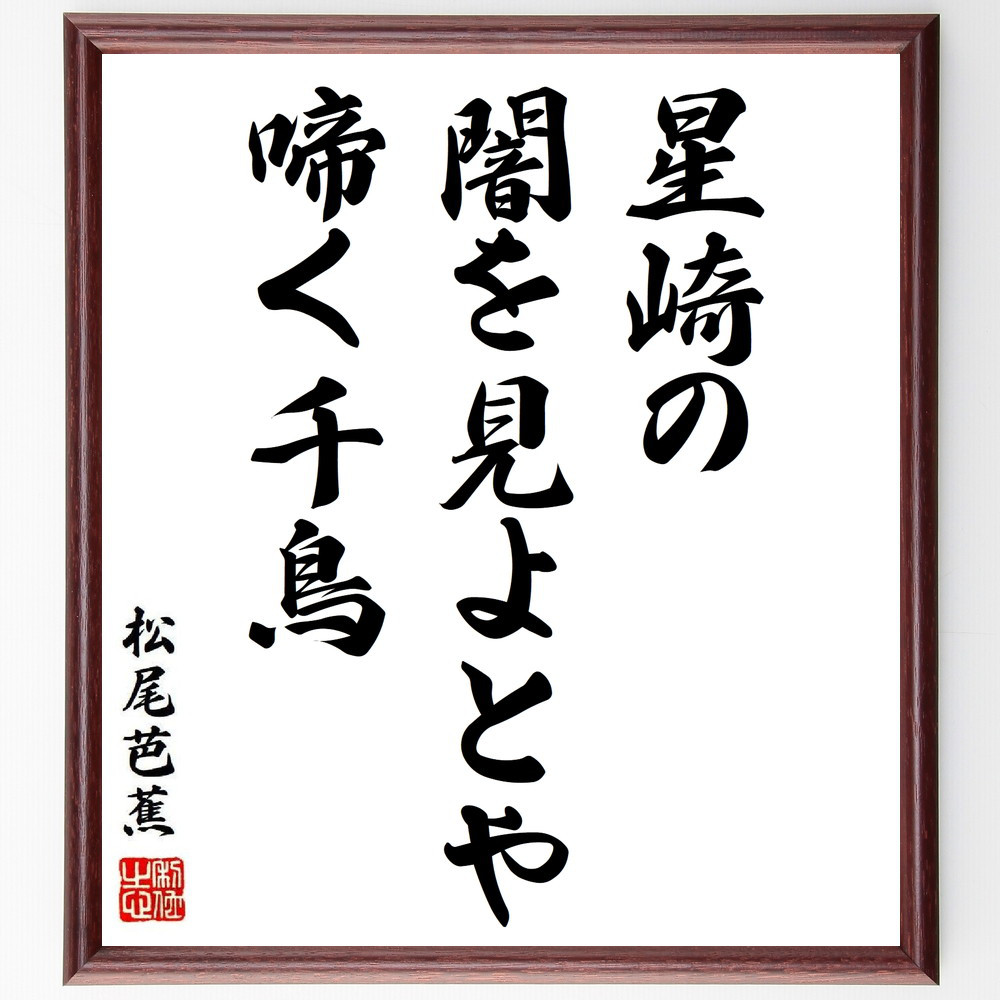 星崎の
闇を見よとや
啼く千鳥
松尾芭蕉